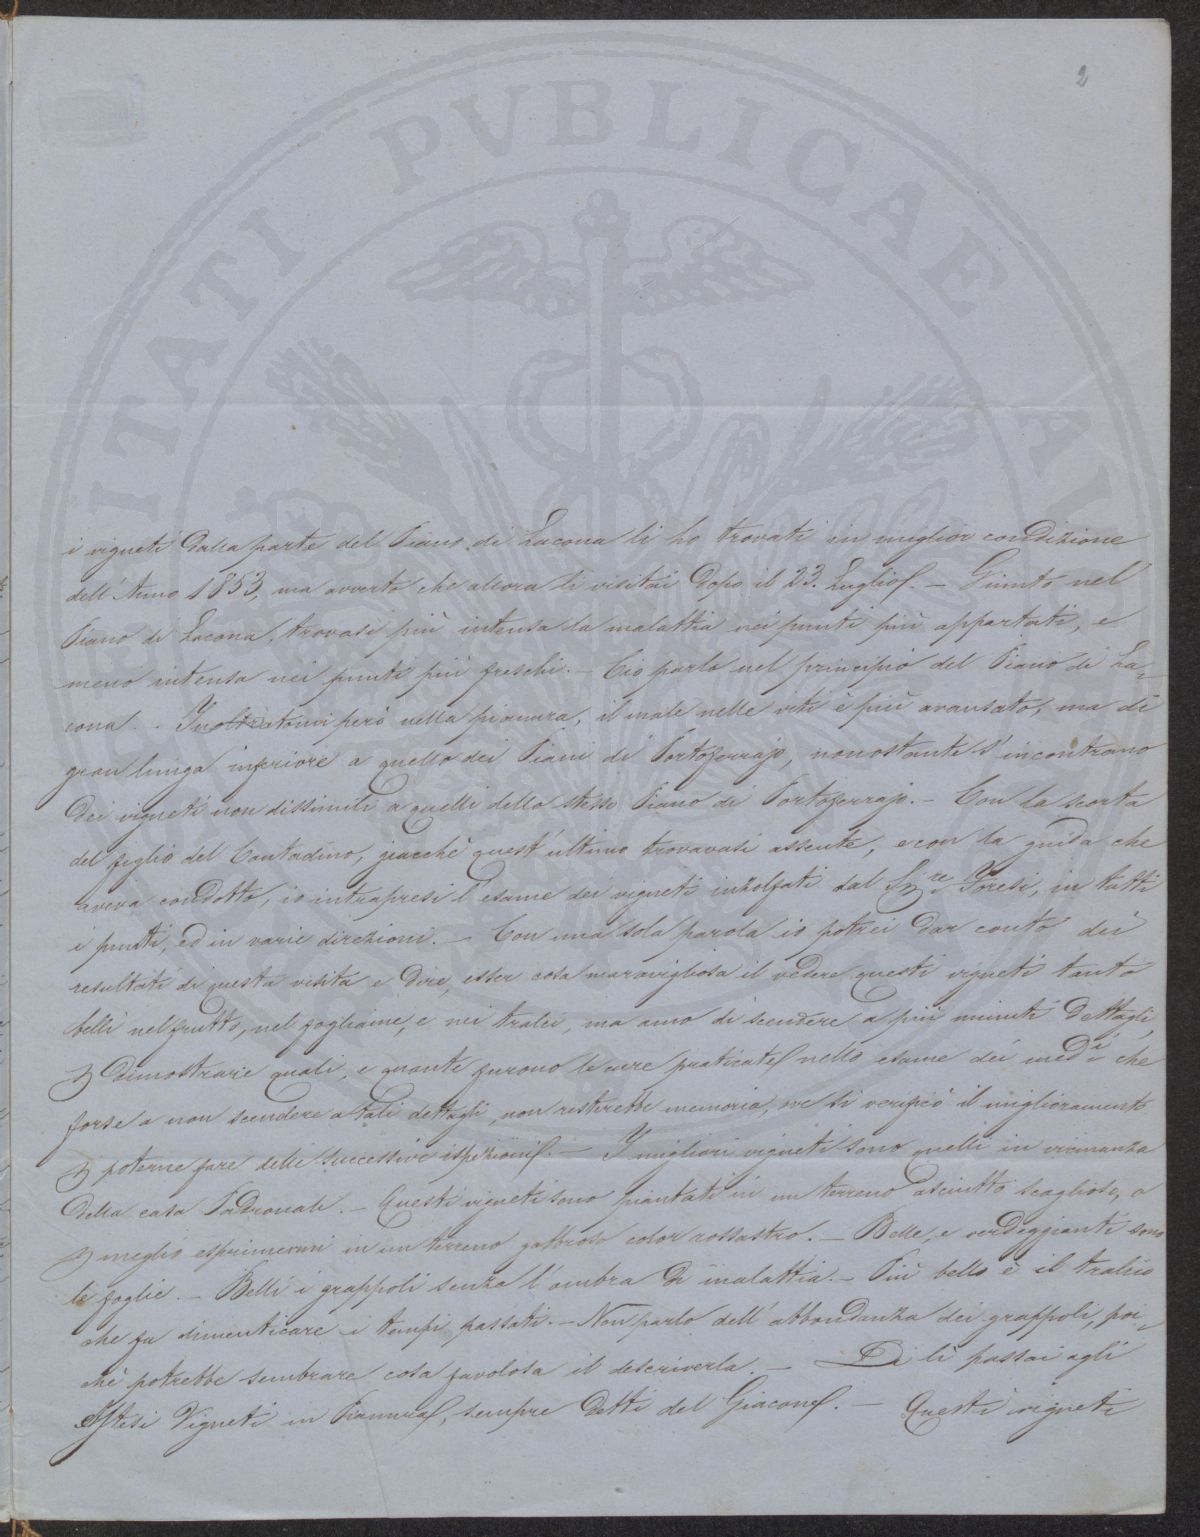 2
i vigneti dalla parte del Piano di Lacona li ho trovati in miglior condizione
dell'Anno 1853, ma avverto che allora li visitai dopo il 23. Luglio. — Giunto nel
Piano di Lacona, trovasi più intensa la malattia nei punti più appartati, e
meno intensa nei punti più freschi. — Ciò parlo nel principio del Piano di La-
cona. Inoltratomi però nella pianura, il male nelle viti è più avansato, ma di
gran lunga inferiore a quello dei Piani di Portoferrajo, nonostante s'incontrano
dei vigneti non dissimili a quelli dello stesso Piano di Portoferrajo. — Con la scorta
del figlio del Contadino, giacchè quest'ultimo trovavasi assente, e con la guida che
aveva condotto, io intrapresi l'esame dei vigneti inzolfati dal Sig.re Foresi, in tutti
i punti, ed in varie direzioni. — Con una sola parola io potrei dar conto dei
resultati di questa visita e dire, esser cosa maravigliosa il vedere questi vigneti tanto
belli nel frutto, nel fogliame, e nei tralci, ma amo di scendere a più minuti dettagli,
dimostrare quali, e quante furono le cure praticate nello esame dei medi che
forse a non scendere a tali dettagli, non resterebbe memoria, ove si verificò il miglioramento
poterne fare delle successive ispezioni. — I migliori vigneti sono quelli in vicinanza
della casa Padronale. — Questi vigneti sono piantati in un terreno asciutto scaglioso, o
meglio esprimermi in un terreno gabbroso color rossastro. — Belle, e verdeggianti sono
le foglie. — Belli i grappoli senza l'ombra di malattia. — Più bello è il tralcio
che fa dimenticare i tempi passati. — Non parlo dell'abbondanza dei grappoli, poi-
chè potrebbe sembrare cosa favolosa il descriverla. — Di lì passai agli
Estesi Vigneti in Pianura, sempre detti del Giacone. — Questi vigneti
PVBLICAE